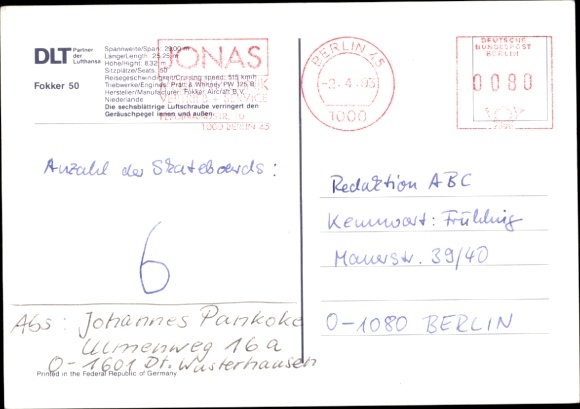 DLT Partner
der
Lufthansa
Fokker 50
Spannweite/Span: 29,00 m
Länge/Length: 25,25 m
Höhe/Hight: 8,32 m
Sitzplätze/Seats: 50
Reisegeschwindigkeit/Cruising speed: 515 km/h
Triebwerke/Engines: Pratt & Whitney PW 125 B
Hersteller/Manufacturer: Fokker Aircraft B.V.
Niederlande
Die sechsblättrige Luftschraube verringert den
Geräuschpegel innen und außen.
JONAS
SERVICE
1000 BERLIN 45
BERLIN 45
1000
DEUTSCHE
BUNDESPOST
BERLIN
0080
Anzahl der Skateboards:
6
Redaktion ABC
Kennwort: Frühling
Mauerstr. 39/40
O-1080 BERLIN
Abs: Johannes Pankoke
Ulmenweg 16a
O-1601 Dt. Wusterhausen
Printed in the Federal Republic of Germany